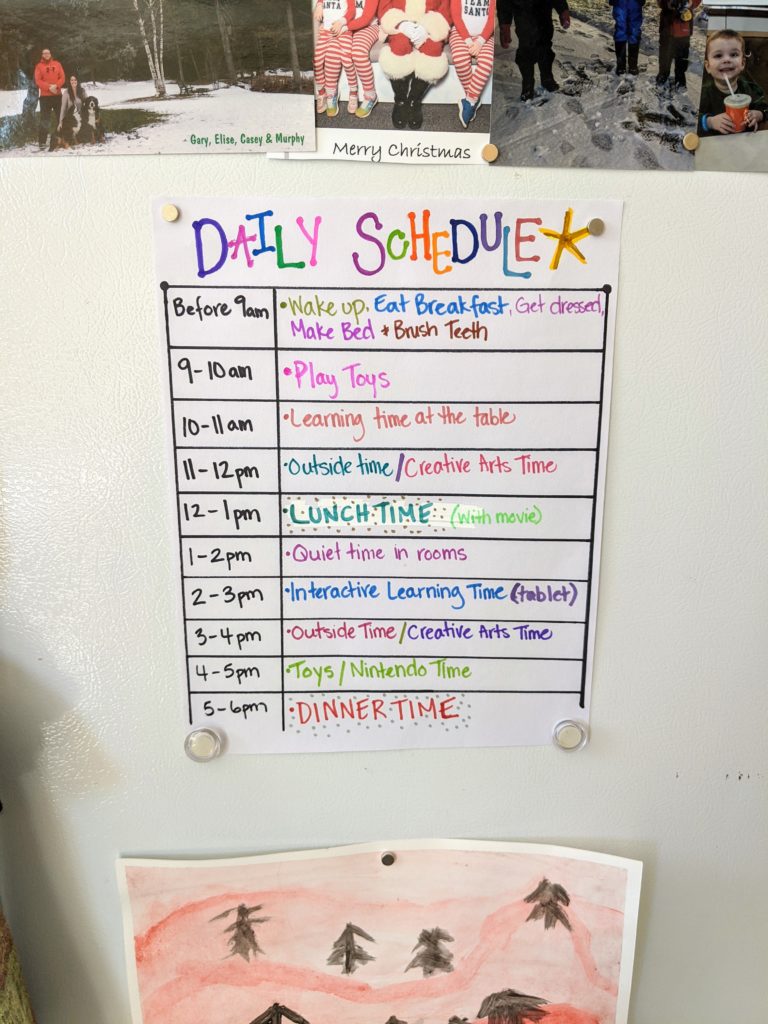 SANTA
TEAM
SANTA
- Gary, Elise, Casey & Murphy
Merry Christmas
DAILY SCHEDULE
Before 9am
• Wake up, Eat Breakfast, Get dressed,
Make Bed + Brush Teeth
9-10am
• Play Toys
10-11am
• Learning time at the table
11-12pm
• Outside time / Creative Arts Time
12-1pm
• LUNCH TIME (with movie)
1-2pm
• Quiet time in rooms
2-3pm
• Interactive Learning Time (tablet)
3-4pm
• Outside Time / Creative Arts Time
4-5pm
• Toys / Nintendo Time
5-6pm
• DINNER TIME